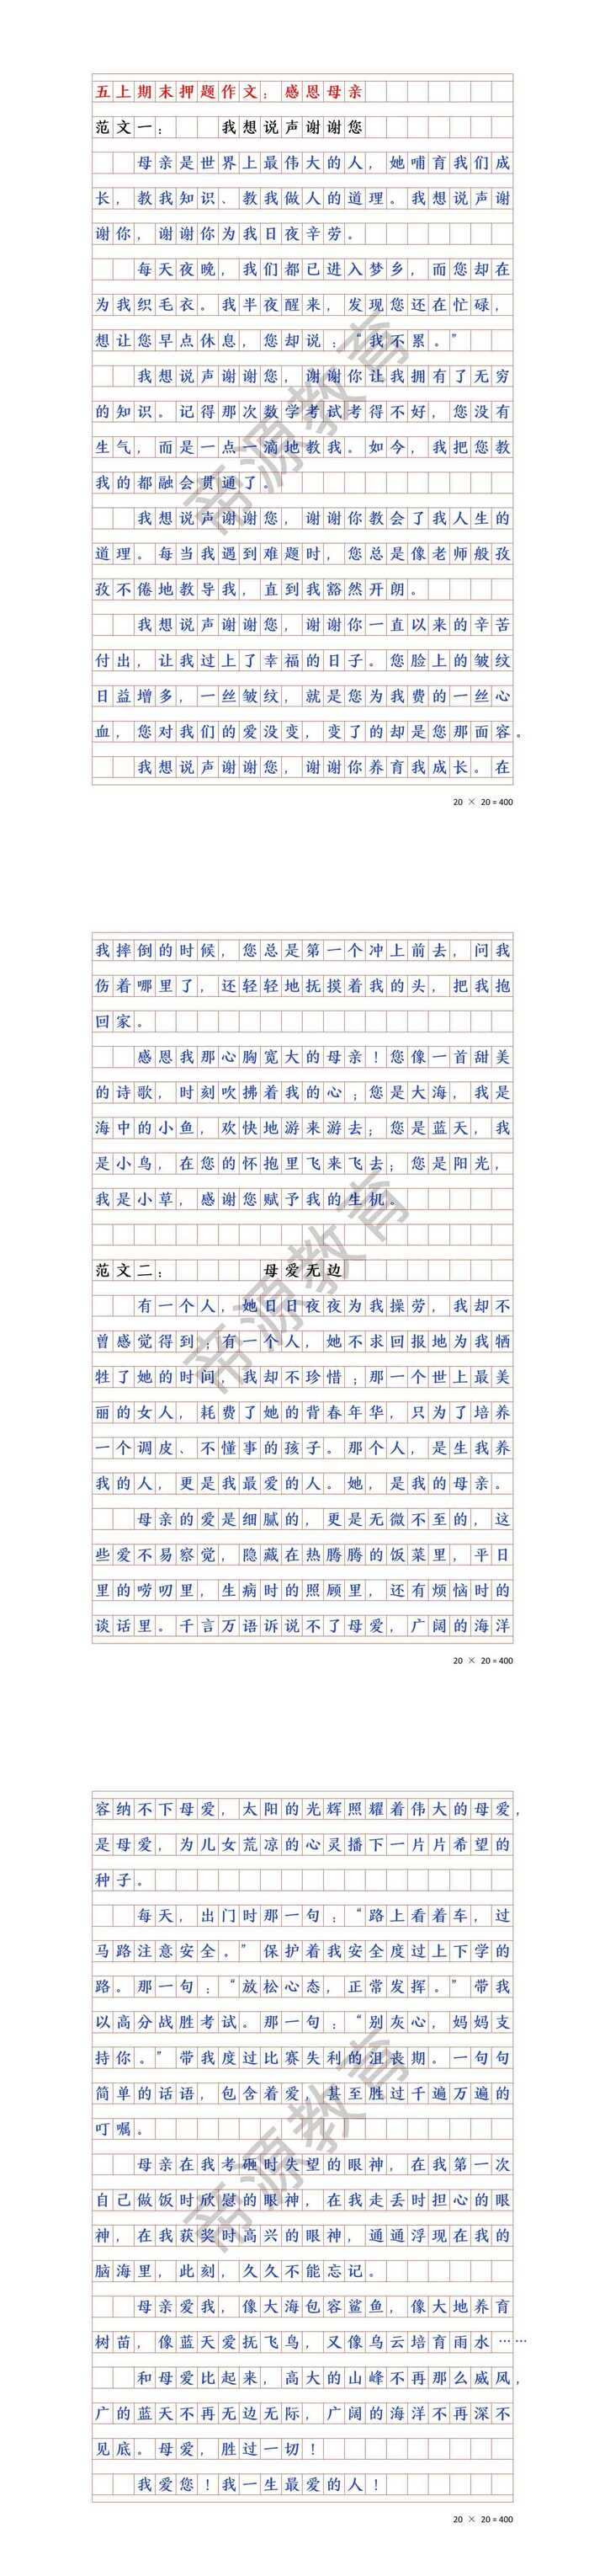 五上期末押题作文：感恩母亲
范文一： 我想说声谢谢您
母亲是世界上最伟大的人，她哺育我们成
长，教我知识、教我做人的道理。我想说声谢
谢你，谢谢你为我日夜辛劳。
每天夜晚，我们都已进入梦乡，而您却在
为我织毛衣。我半夜醒来，发现您还在忙碌，
想让您早点休息，您却说：“我不累。”
我想说声谢谢您，谢谢你让我拥有了无穷
的知识。记得那次数学考试考得不好，您没有
生气，而是一点一滴地教我。如今，我把您教
我的都融会贯通了。
我想说声谢谢您，谢谢你教会了我人生的
道理。每当我遇到难题时，您总是像老师般孜
孜不倦地教导我，直到我豁然开朗。
我想说声谢谢您，谢谢你一直以来的辛苦
付出，让我过上了幸福的日子。您脸上的皱纹
日益增多，一丝皱纹，就是您为我费的一丝心
血，您对我们的爱没变，变了的却是您那面容。
我想说声谢谢您，谢谢你养育我成长。在
20 × 20 = 400
我摔倒的时候，您总是第一个冲上前去，问我
伤着哪里了，还轻轻地抚摸着我的头，把我抱
回家。
感恩我那心胸宽大的母亲！您像一首甜美
的诗歌，时刻吹拂着我的心；您是大海，我是
海中的小鱼，欢快地游来游去；您是蓝天，我
是小鸟，在您的怀抱里飞来飞去；您是阳光，
我是小草，感谢您赋予我的生机。
范文二： 母爱无边
有一个人，她日日夜夜为我操劳，我却不
曾感觉得到；有一个人，她不求回报地为我牺
牲了她的时间，我却不珍惜；那一个世上最美
丽的女人，耗费了她的背春年华，只为了培养
一个调皮、不懂事的孩子。那个人，是生我养
我的人，更是我最爱的人。她，是我的母亲。
母亲的爱是细腻的，更是无微不至的，这
些爱不易察觉，隐藏在热腾腾的饭菜里，平日
里的唠叨里，生病时的照顾里，还有烦恼时的
谈话里。千言万语诉说不了母爱，广阔的海洋
20 × 20 = 400
容纳不下母爱，太阳的光辉照耀着伟大的母爱，
是母爱，为儿女荒凉的心灵播下一片片希望的
种子。
每天，出门时那一句：“路上看着车，过
马路注意安全。”保护着我安全度过上下学的
路。那一句：“放松心态，正常发挥。”带我
以高分战胜考试。那一句：“别灰心，妈妈支
持你。”带我度过比赛失利的沮丧期。一句句
简单的话语，包含着爱，甚至胜过千遍万遍的
叮嘱。
母亲在我考砸时失望的眼神，在我第一次
自己做饭时欣慰的眼神，在我走丢时担心的眼
神，在我获奖时高兴的眼神，通通浮现在我的
脑海里，此刻，久久不能忘记。
母亲爱我，像大海包容鲨鱼，像大地养育
树苗，像蓝天爱抚飞鸟，又像乌云培育雨水……
和母爱比起来，高大的山峰不再那么威风，
广的蓝天不再无边无际，广阔的海洋不再深不
见底。母爱，胜过一切！
我爱您！我一生最爱的人！
20 × 20 = 400
帝源教育
帝源教育
帝源教育